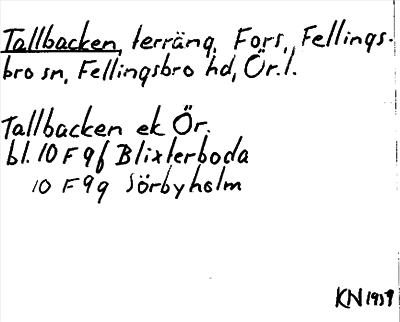 Tallbacken, terräng, Fors, Fellings-
bro sn, Fellingsbro hd, Ör. l.
Tallbacken ek Ör.
bl. 10 F 9f Blixterboda
10 F 9g Sörbyholm
KN 1937